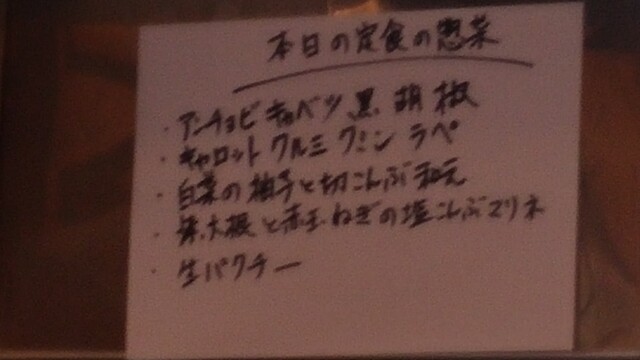 本日の定食の惣菜
・アンチョビキャベツ黒胡椒
・キャロットクルミクミンラペ
・白菜の柚子と切こんぶ和え
・大根と赤玉ねぎの塩こんぶマリネ
・生パクチー